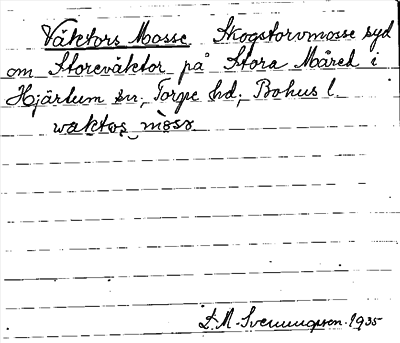 Väktors Mosse. Skogstorvmosse syd
om Storeväktor på Stora Måred i
Hjärtum sn; Torpe hd; Bohus l.
waktos mosx
L. M. Svenungsson. 1935